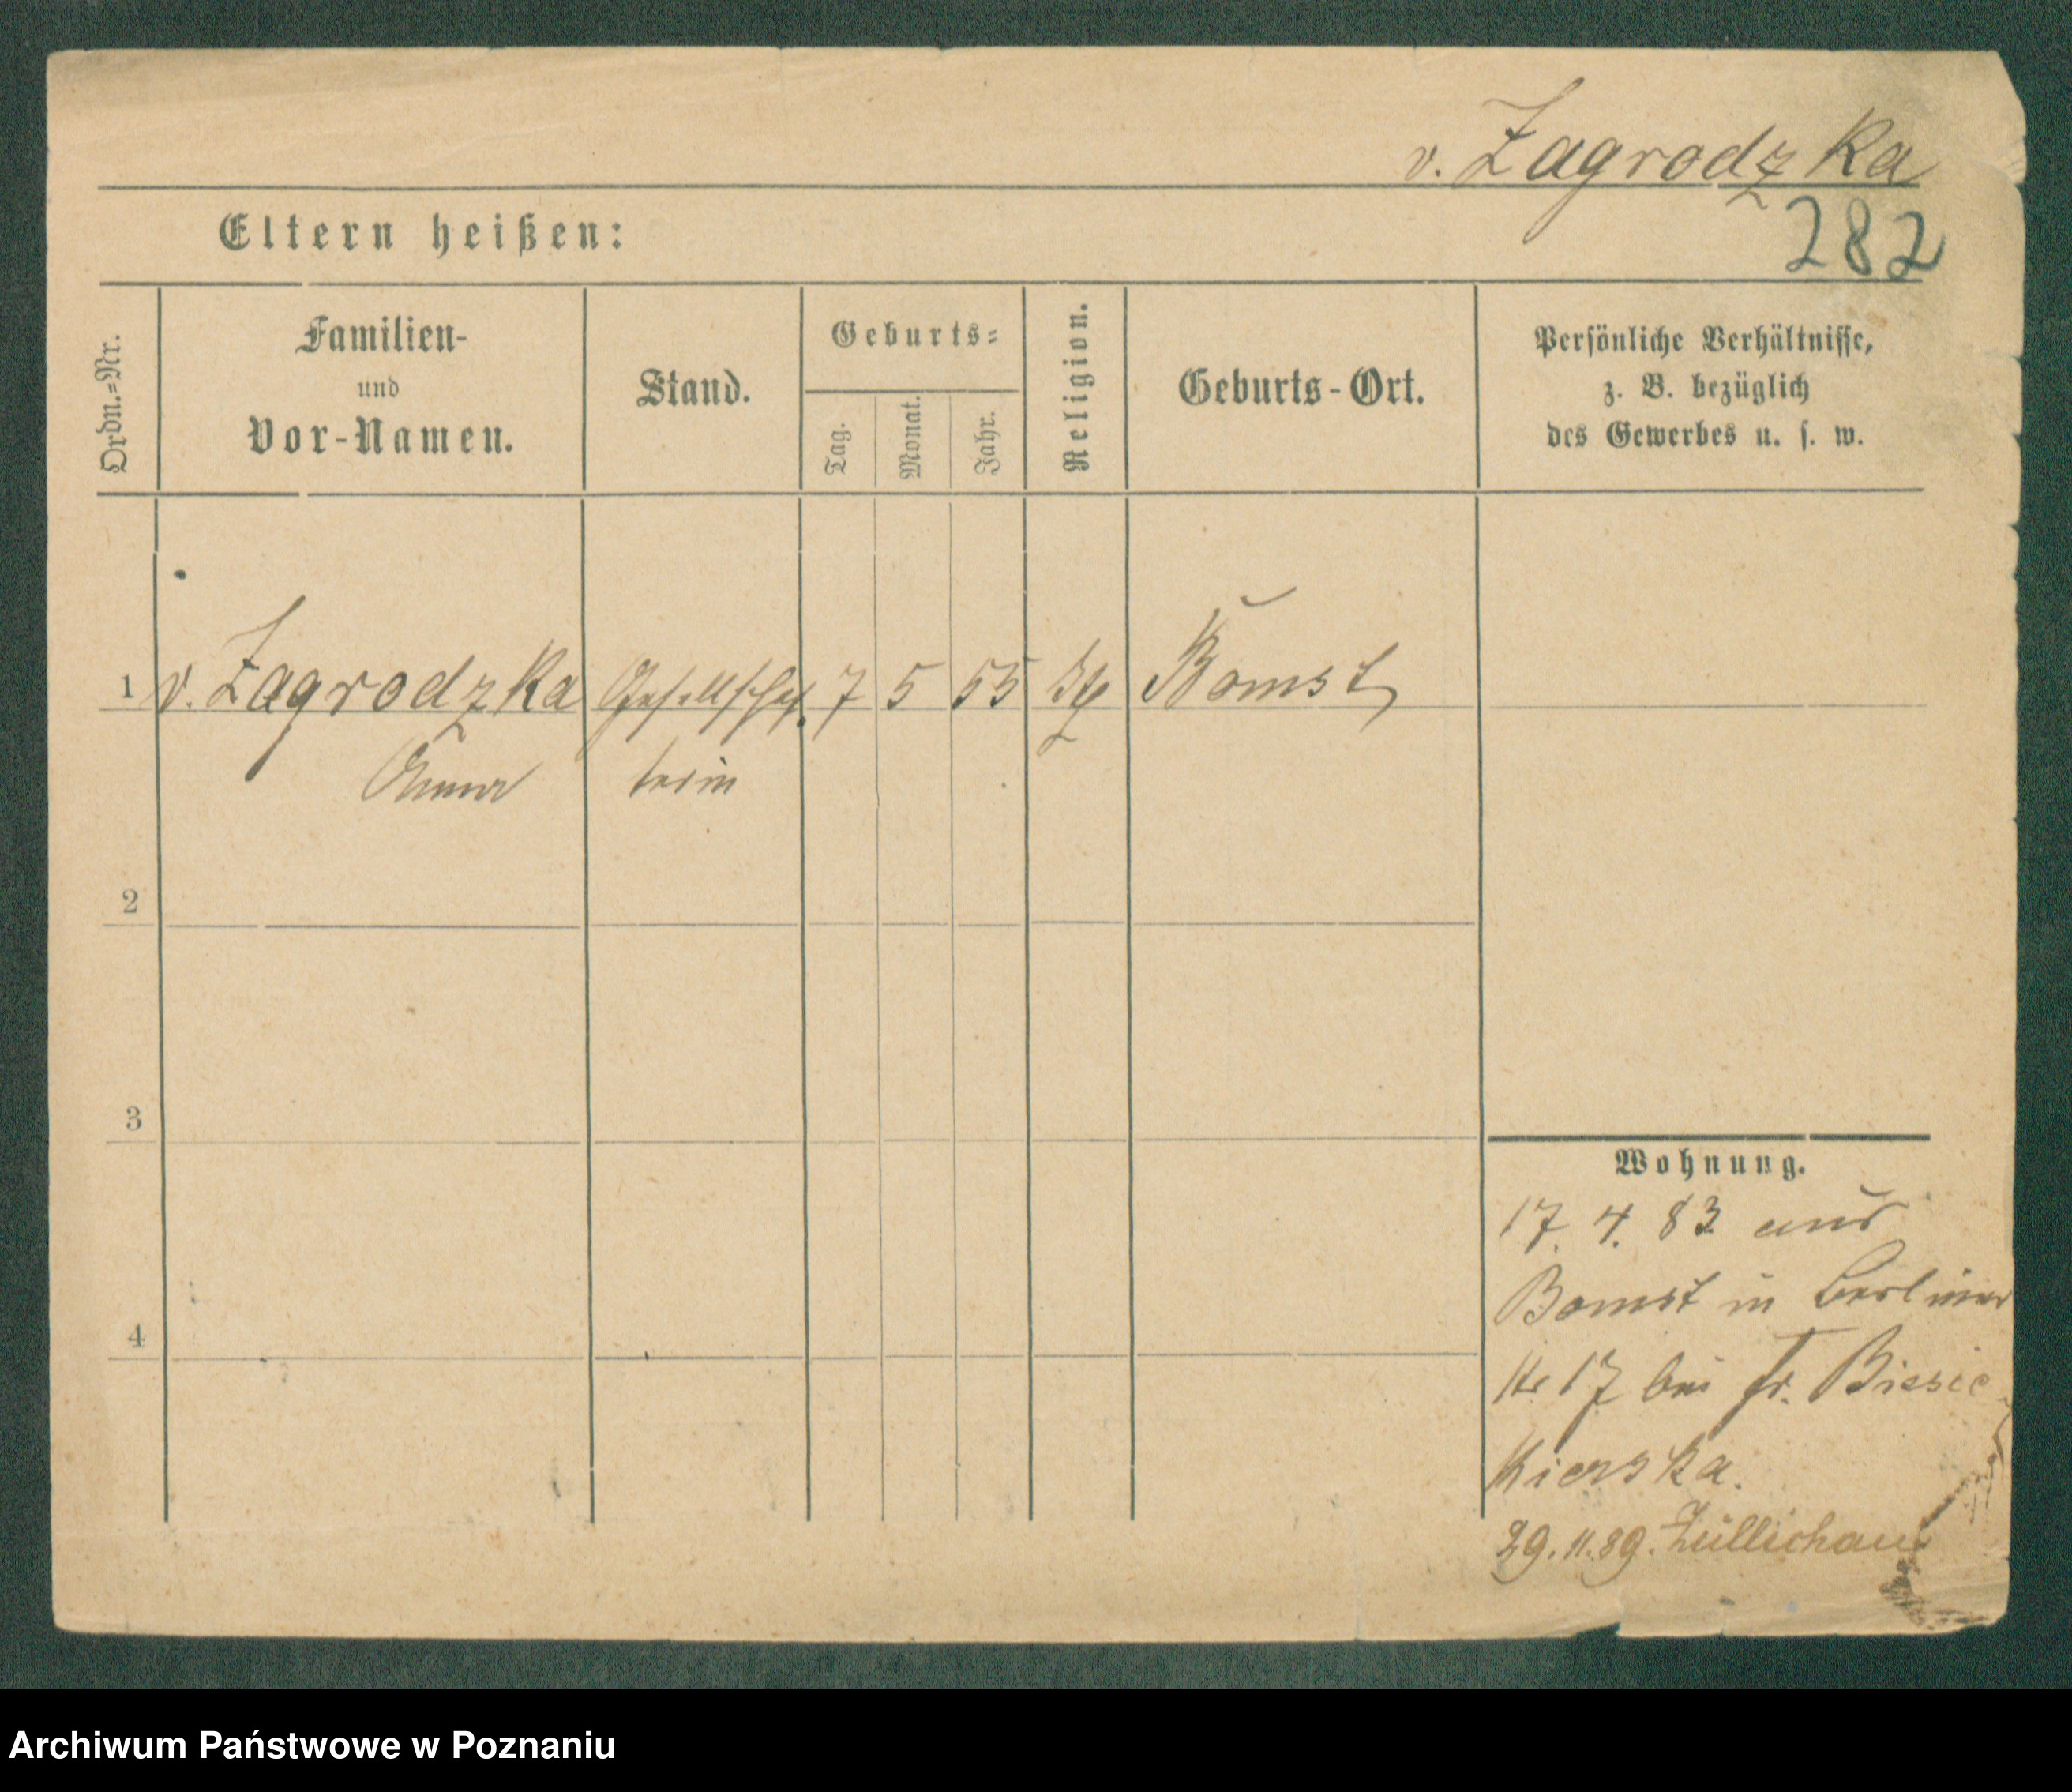 v. Zagrodzka
282
Eltern heißen:
Ordn.=Nr.
Familien-
und
Vor-Namen.
Stand.
Geburts=
Tag.
Monat.
Jahr.
Religion.
Geburts-Ort.
Persönliche Verhältnisse,
z. B. bezüglich
des Gewerbes u. s. w.
1 v. Zagrodzka Gesellschaf 7 5 55 Bomst
Anna terin
2
3
4
Wohnung.
17. 4. 83 aus
Bomst in Berliner
17 bei Fr. Biesie
kierska.
29. 11. 89. Züllichau
Archiwum Państwowe w Poznaniu